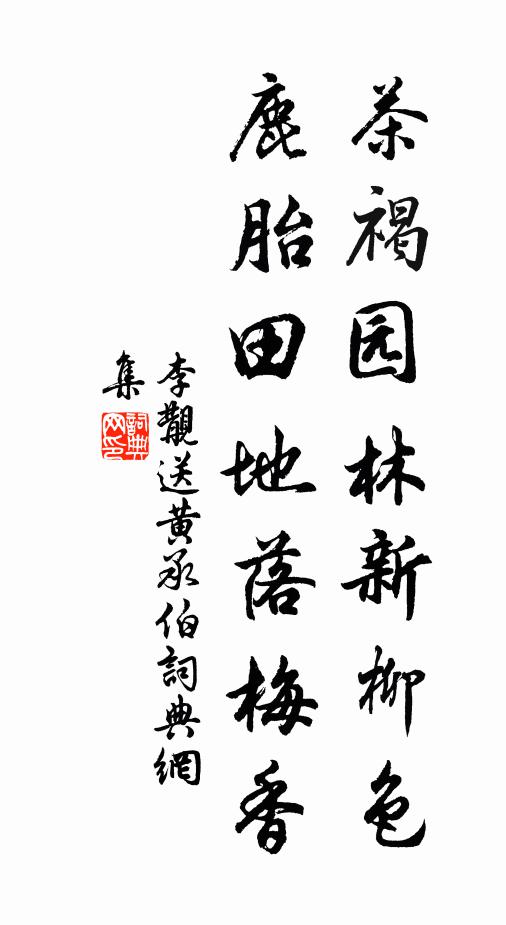 茶褐园林新柳色
鹿胎田地落梅香
李觏送黄承伯詞典網
集
詞典网印